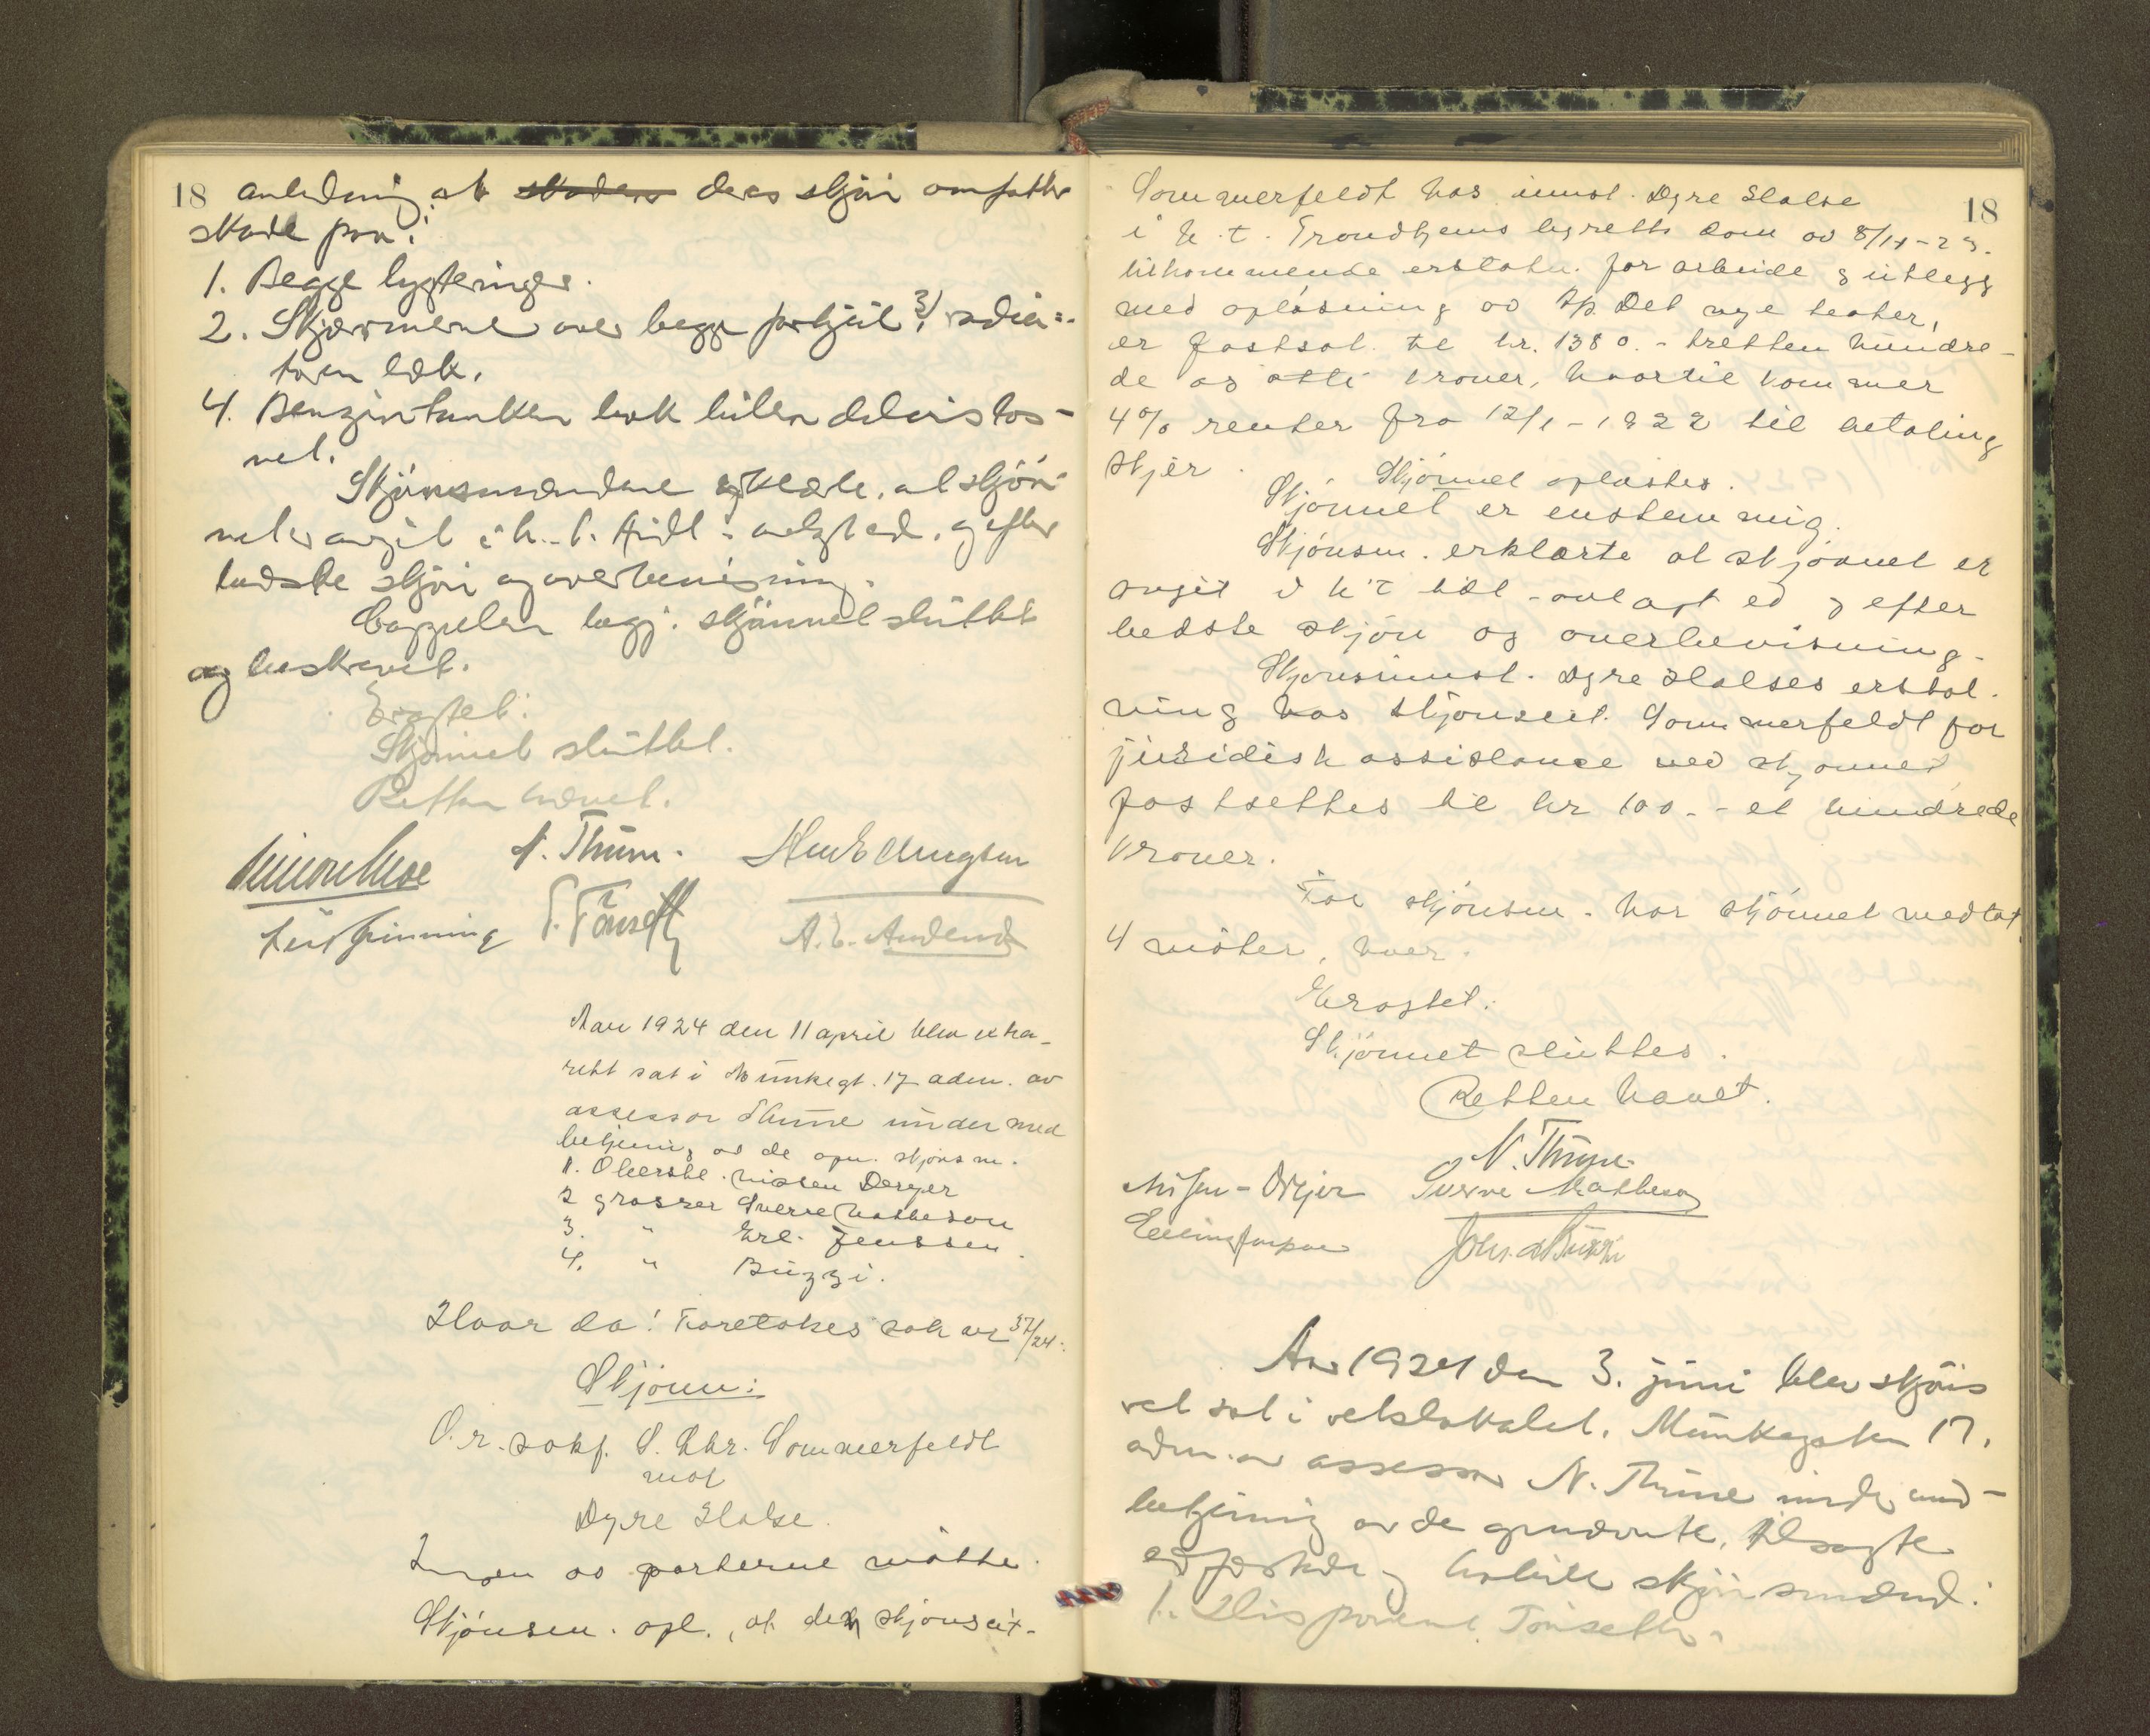 18 anledning at skaden deres skjön omfatter
skade paa:
1. Begge lygteringer.
2. Skjærmene over begge forhjul 3/ radia-
toren læk.
4. Benzintanken læk bilen delvis løs-
net.
Skjönsmændene erklærte, at skjön-
net er avgit i h. t. tidl. avlagt ed og efter
bedste skjön og overbevisning.
Cappelen begj. skjönnet sluttet
og beskrevet.
Eragtet:
Skjönnet sluttet.
Retten hævet.
N. Thüne.
A. E.
Aar 1924 den 11 april blev extra-
rett sat i Munkegt. 17 adm. av
assessor Thune under med
betjening av de opn. skjönsm.
1. Oberstl. Nissen Dreyer
2 grosser Sverre Matheson
3. " Erl. Jenssen.
4. " Buzzi.
Hvor da! Foretokes sak nr 37/24.
Skjönn:
O.r.sakf. S. Chr. Sommerfeldt
mot
Dyre Halse.
Ingen av parterne mötte.
Skjönsm. opl., at den skjönscit.
Sommerfeldt hos innst. Dyre Halse 18
i h. t. Trondhjems byretts dom av 8/11-23.
tilkommende erstatn. for arbeide & utlegg
med oplösning av A/S Det nye teater,
er fastsat til kr. 1380.- tretten hundre-
de og otti kroner, hvortil kommer
4% renter fra 12/1-1922 til betaling
skjer.
Skjönnet oplæstes.
Skjönnet er enstemmig.
Skjönsm. erklærte at skjönnet er
avgit i h. t. tidl. avlagt ed & efter
bedste skjön og overbevisning.
Skjönsinnst. Dyre Halses erstat-
ning hos skjönscit. Sommerfeldt for
juridisk assistance ved skjönnet
fastsettes til kr 100.- et hundrede
kroner.
For skjönsm. har skjönnet medtat
4 möter, hver.
Eragtet:
Skjönnet sluttes.
Retten hævet.
N. Thüne
Nissen-Dreyer Sverre Matheson
Erling Jenssen Johs. Buzzi
Aar 1924 den 3. juni blev skjöns
ret sat i retslokalet, Munkegaten 17,
adm. av assessor N. Thüne under med-
betjening av de opnævnte, tilsagte
edfæstede og habile skjönsmænd:
1. Disponent Tönseth.